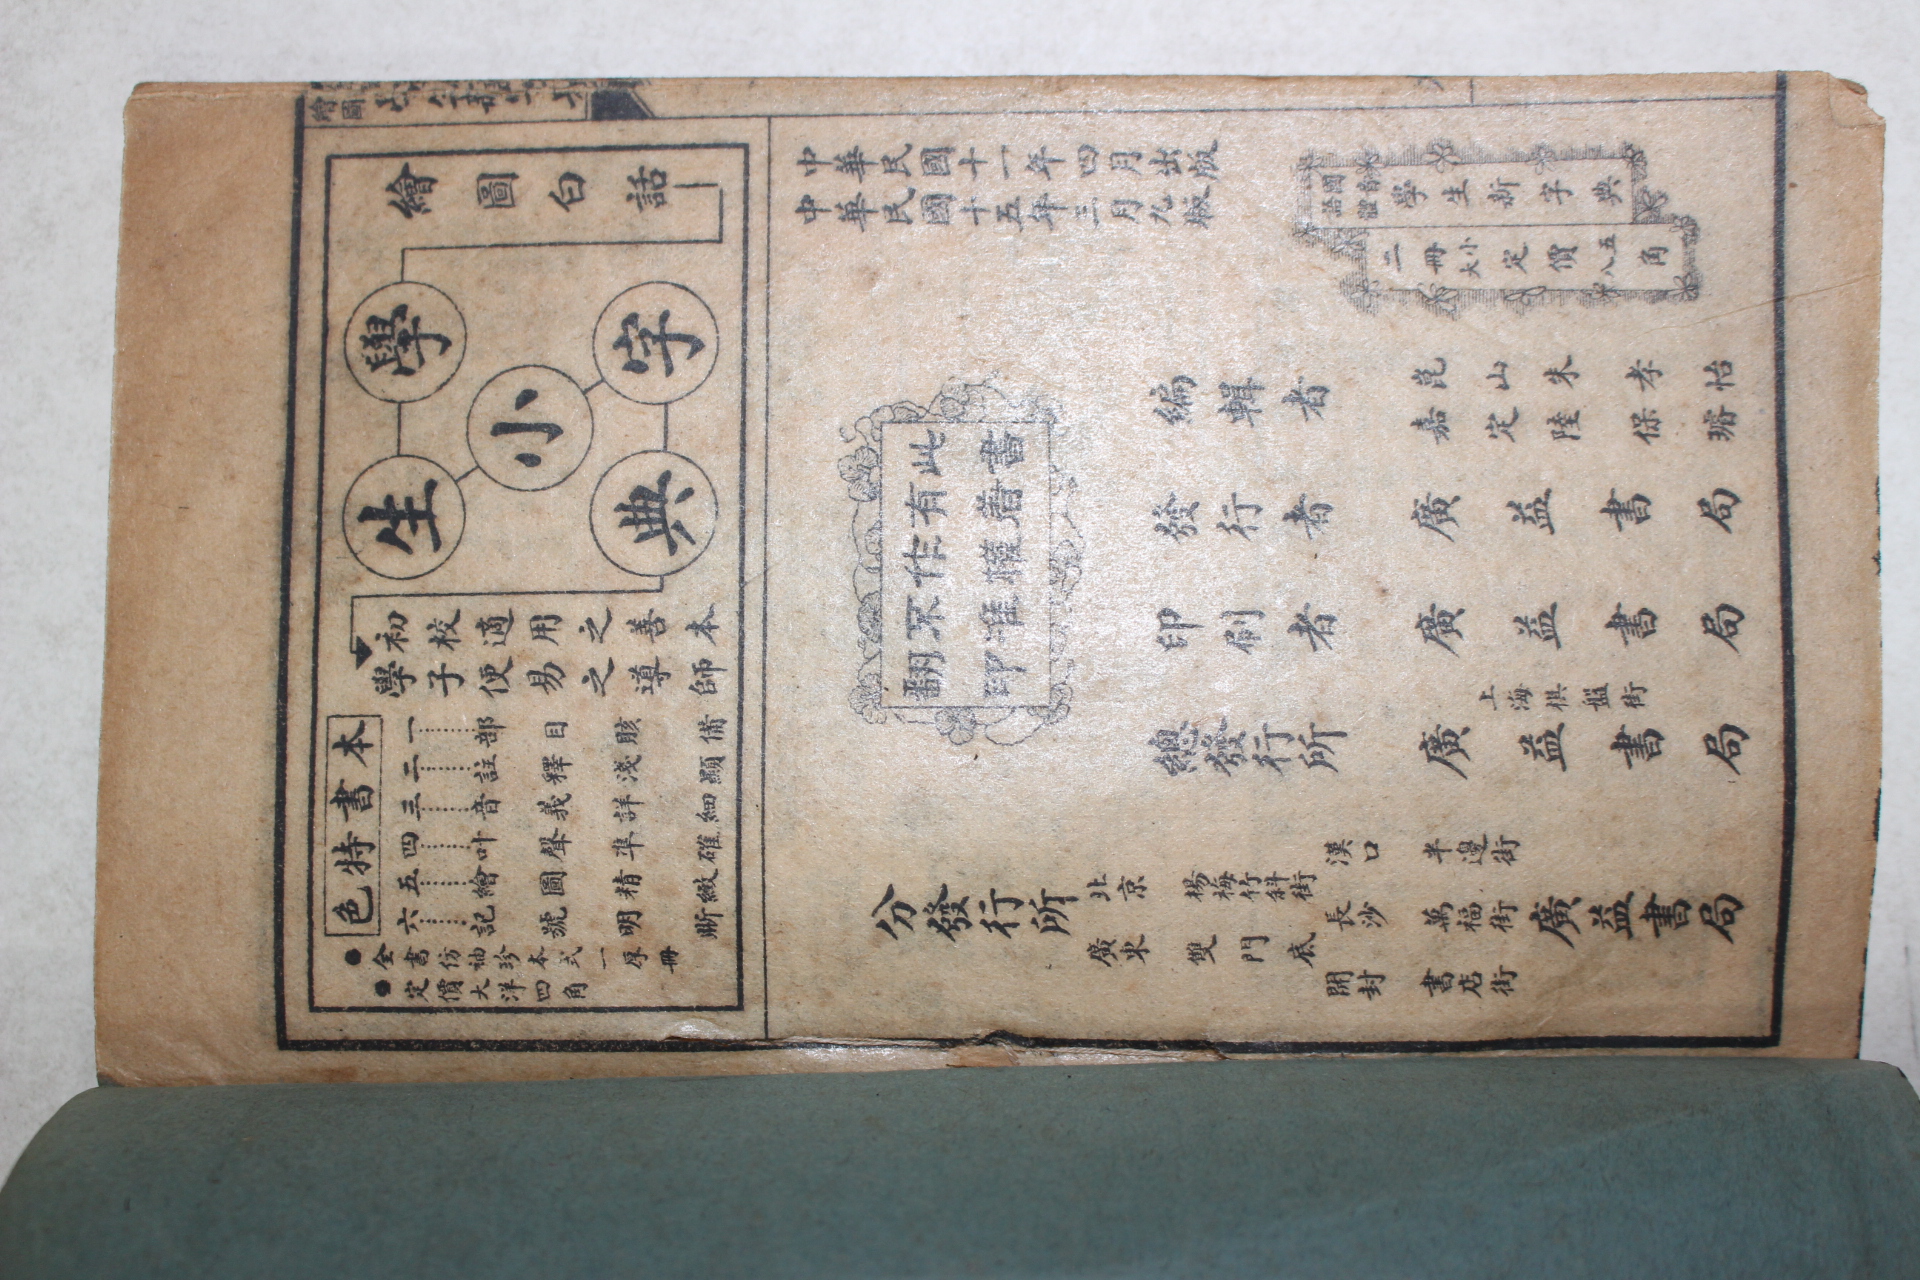 繪圖白話
學生小字典
初校適用之善本
學子便易之導師
本書特色
一……部目賅備
二……註釋淺顯
三……音義詳細
四……叶聲準確
五……繪圖精緻
六……記號明晰
●全書仿袖珍本式一厚冊
●定價大洋四角
中華民國十一年四月出版
中華民國十五年三月九版
學生新字典
二冊定價 大小 八五角
此書
有著
作權
不准
翻印
編輯者 崑山朱孝怡
嘉定陸保璿
發行者 廣益書局
印刷者 廣益書局
上海棋盤街
總發行所 廣益書局
分發行所 廣益書局
北京 楊梅竹斜街
廣東 雙門底
漢口 半邊街
長沙 萬福街
開封 書店街